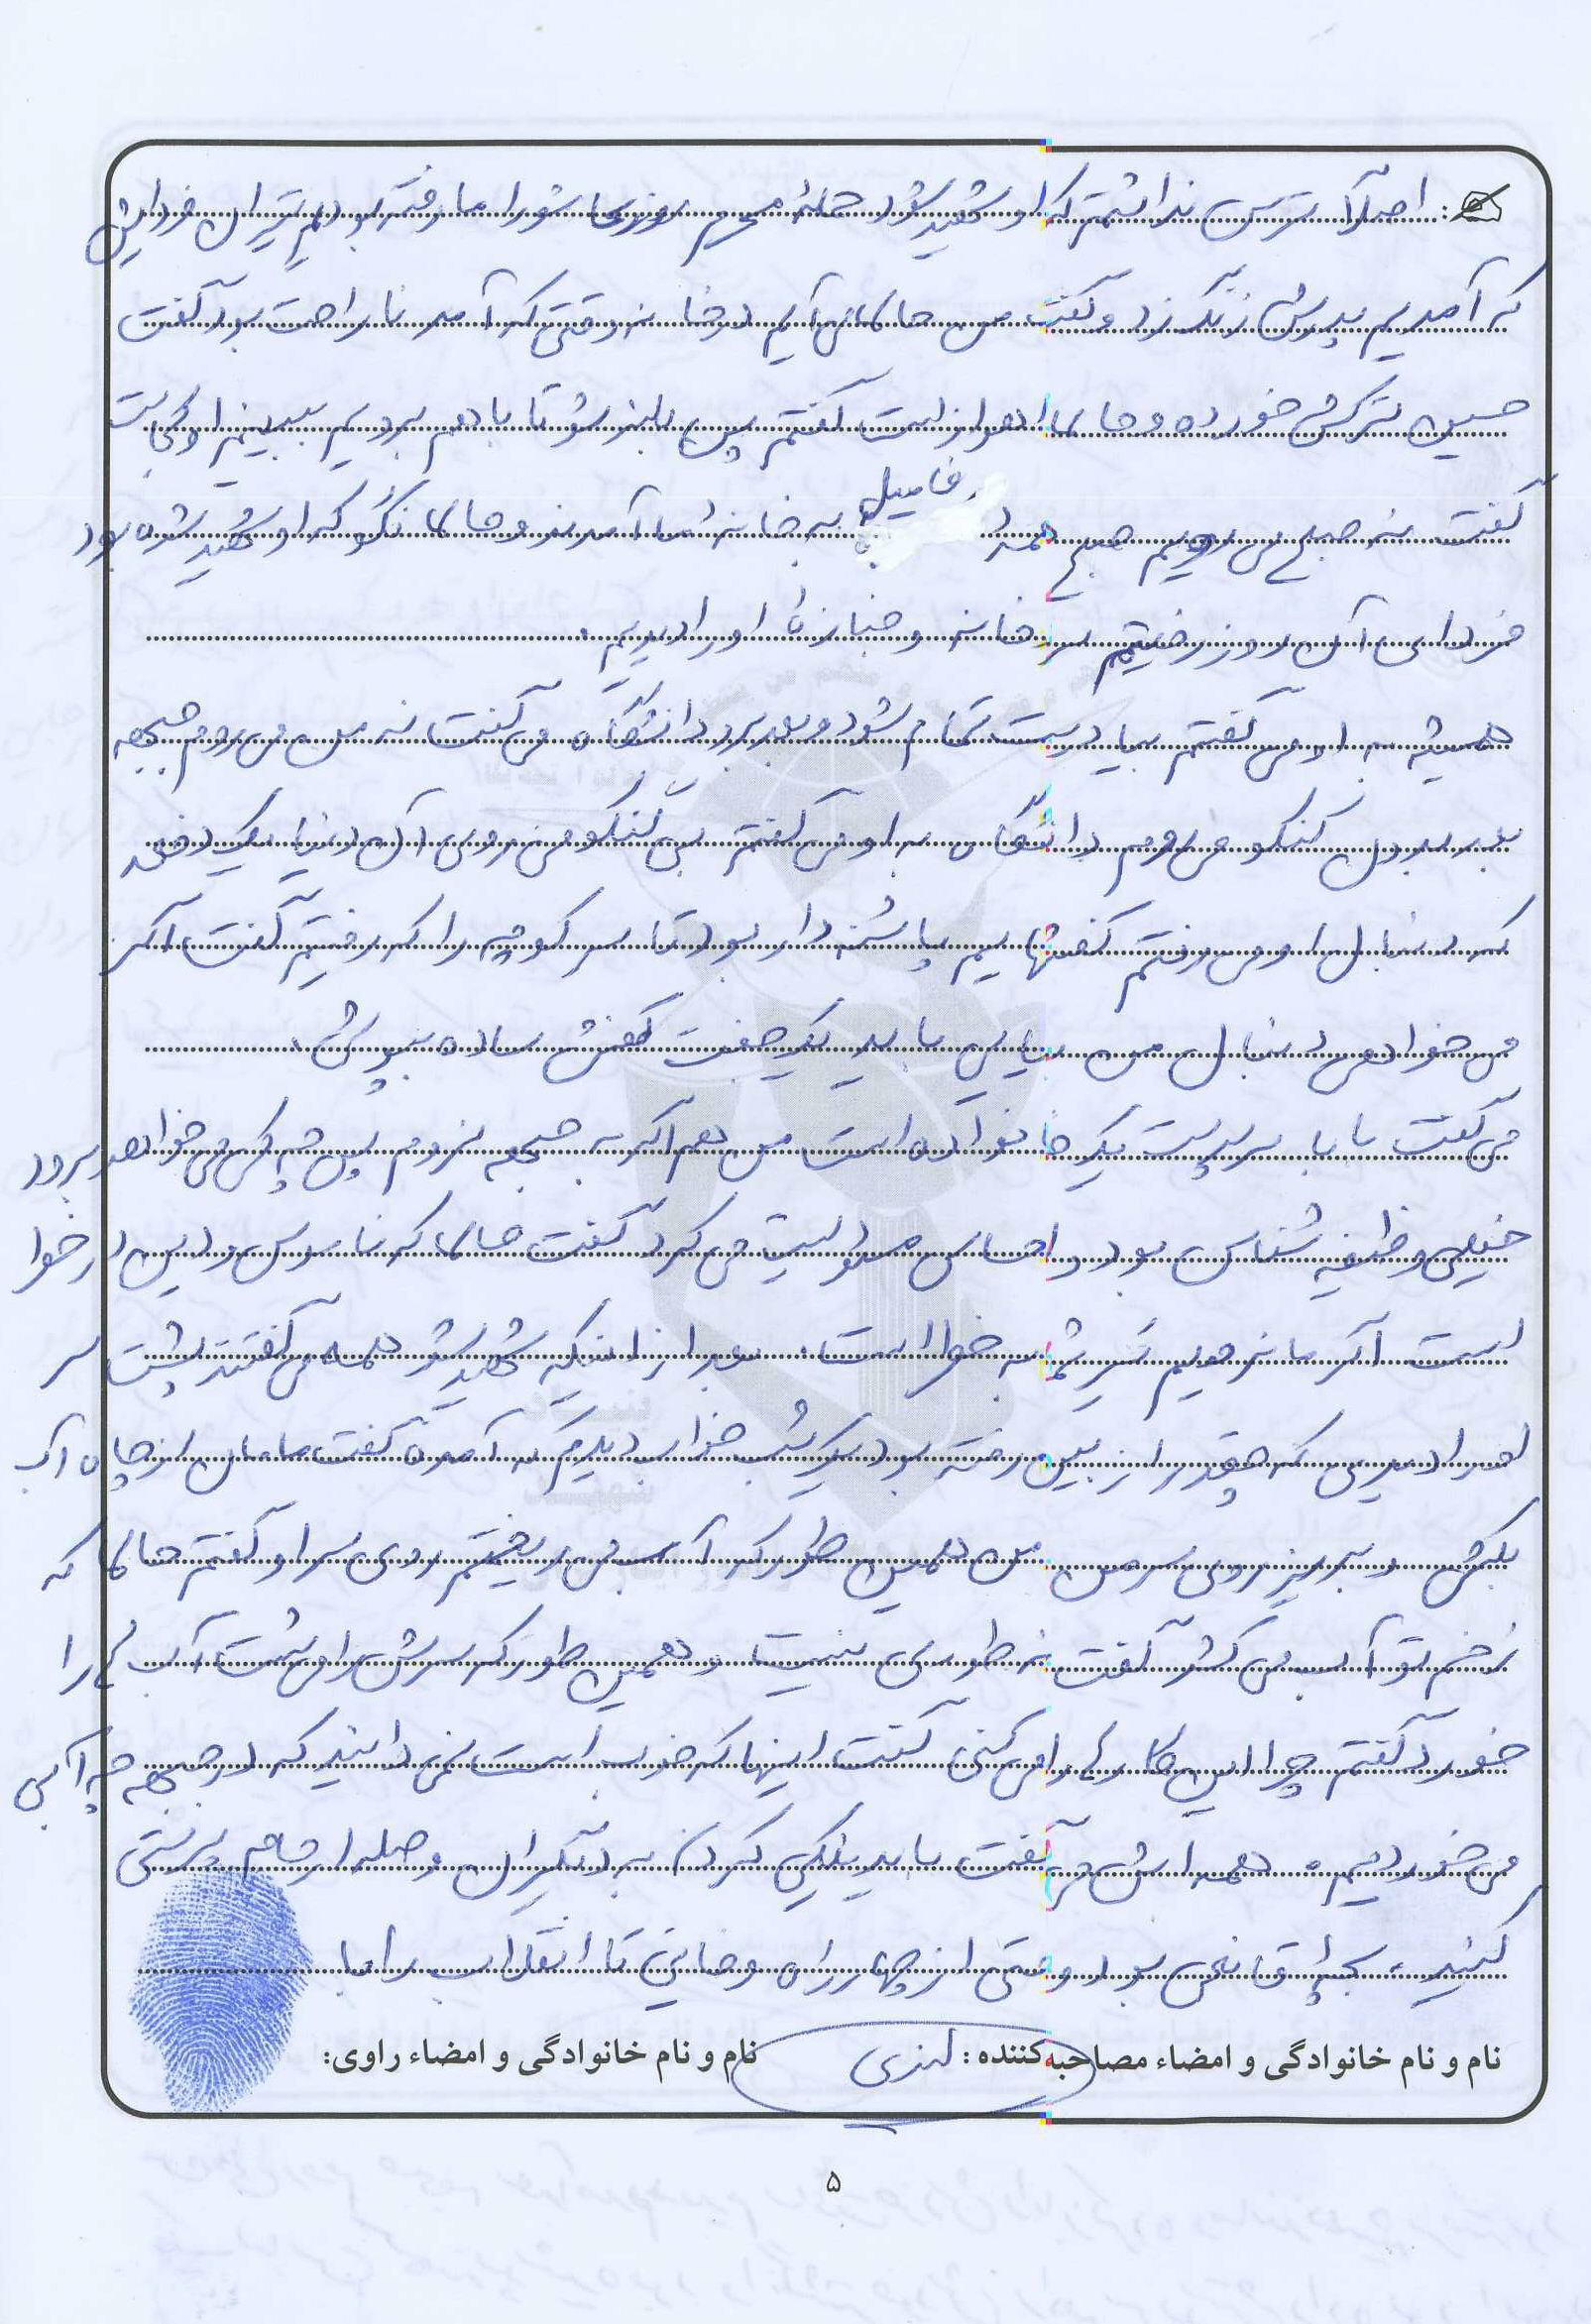 اصلاً ترس نداشتم که او شهید شود حمله محرم روز عاشورا ما رفته بودیم تیران فردایش
که آمدیم پدرش زنگ زد و گفت من حالا می آیم در خانه وقتی که آمد ناراحت بود گفت
حسین ترکش خورده و حالا اهواز است گفتم پس بلند شو تا با هم برویم ببینیم او کجاست
گفت نه صبح می رویم صبح همه فامیل به خانه ما آمدند و حالا نگو که او شهید شده بود
فردای آن روز رفتیم سردخانه و جنازۀ او را دیدیم.
همیشه به او می گفتم بیا درست تمام شود و بعد برو دانشگاه می گفت نه من می روم جبهه
بعد بدون کنکور می روم دانشگاه به او می گفتم بی کنکور می روی آن دنیا یک دفعه
که دنبال او می رفتم کفشهایم پاشنه دار بود تا سر کوچه را که رفتیم گفت اگر
می خواهی دنبال من بیایی باید یک جفت کفش ساده بپوشی.
می گفت بابا سرپرست یک خانواده است من هم اگر به جبهه نروم پس چه کسی می خواهد برود
خیلی وظیفه شناس بود و احساس مسئولیت می کرد گفت حالا که ناموس و دین در خطر
است اگر ما نرویم شما به خدا است. بعد از اینکه شهید شد همه می گفتند پشت سر
او را دیدی که چقدر از بین رفته بود یک شب خواب دیدم که آمده گفت مامان از چاه آب
بکش و بریز روی سر من من همین طور که آب می ریختم روی سر او گفتم حالا که
زخم تو آب می کشد گفت نه طوری نیست و همین طور که سرش را می شست آب ها را
خورد گفتم چرا این کارها را می کنی گفت اینها که خوب است نمی دانید که در جبهه چه آبی
می خوردیم. همه اش می گفت باید نیکی کردن به دیگران و صله ارحام پرستی
کنید، بچه قانعی بود وقتی از چهارراه وفایی تا انقلاب را با
نام و نام خانوادگی و امضاء مصاحبه‌کننده:
نام و نام خانوادگی و امضاء راوی:
۵